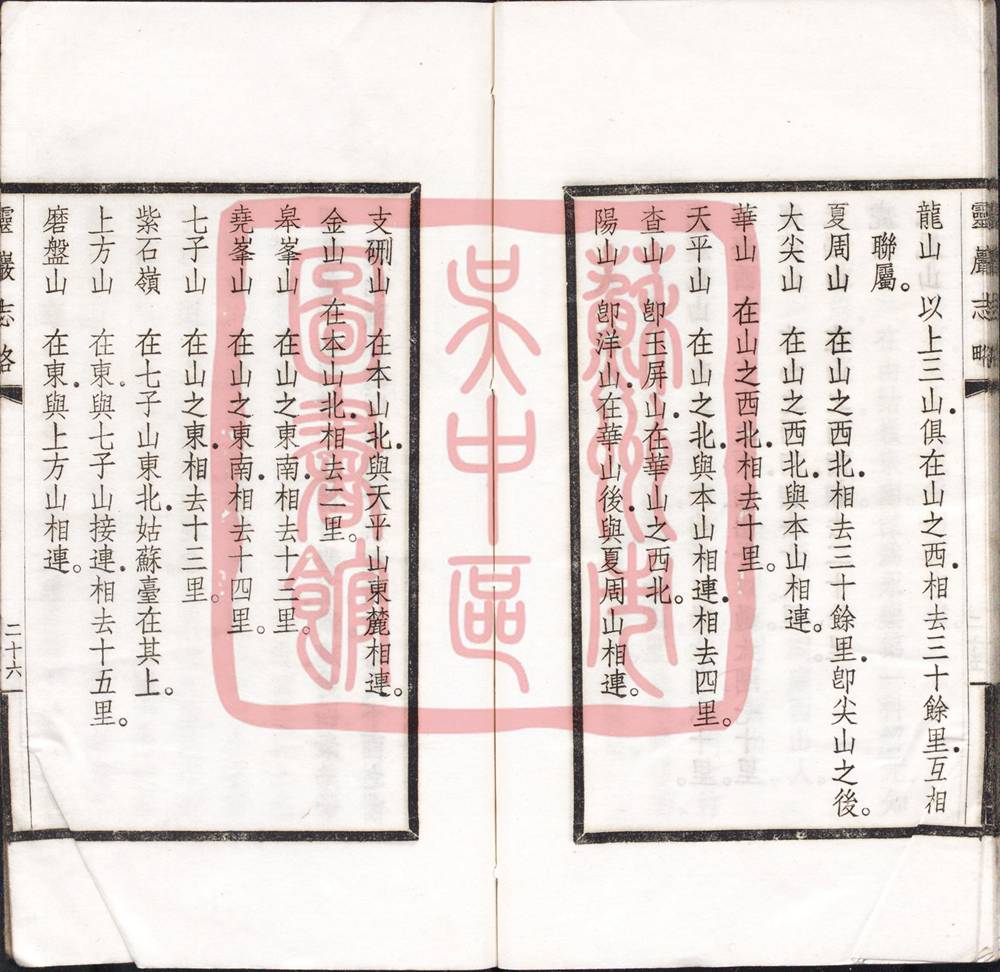 靈巖志略
龍山　以上三山俱在山之西．相去三十餘里．互相
聯屬。
夏周山　在山之西北．相去三十餘里．卽尖山之後。
大尖山　在山之西北．與本山相連。
華山　在山之西北．相去十里。
天平山　在山之北．與本山相連．相去四里。
查山　卽玉屏山．在華山之西北。
陽山　卽洋山．在華山後．與夏周山相連。
支硎山　在本山北．與天平山東麓相連。
金山　在本山北．相去二里。
皋峯山　在山之東南．相去十三里。
堯峯山　在山之東南．相去十四里。
七子山　在山之東．相去十三里。
紫石嶺　在七子山東北．姑蘇臺在其上。
上方山　在東．與七子山接連．相去十五里。
磨盤山　在東．與上方山相連。
靈巖志略
二十六
蘇州市
吳中區
圖書館